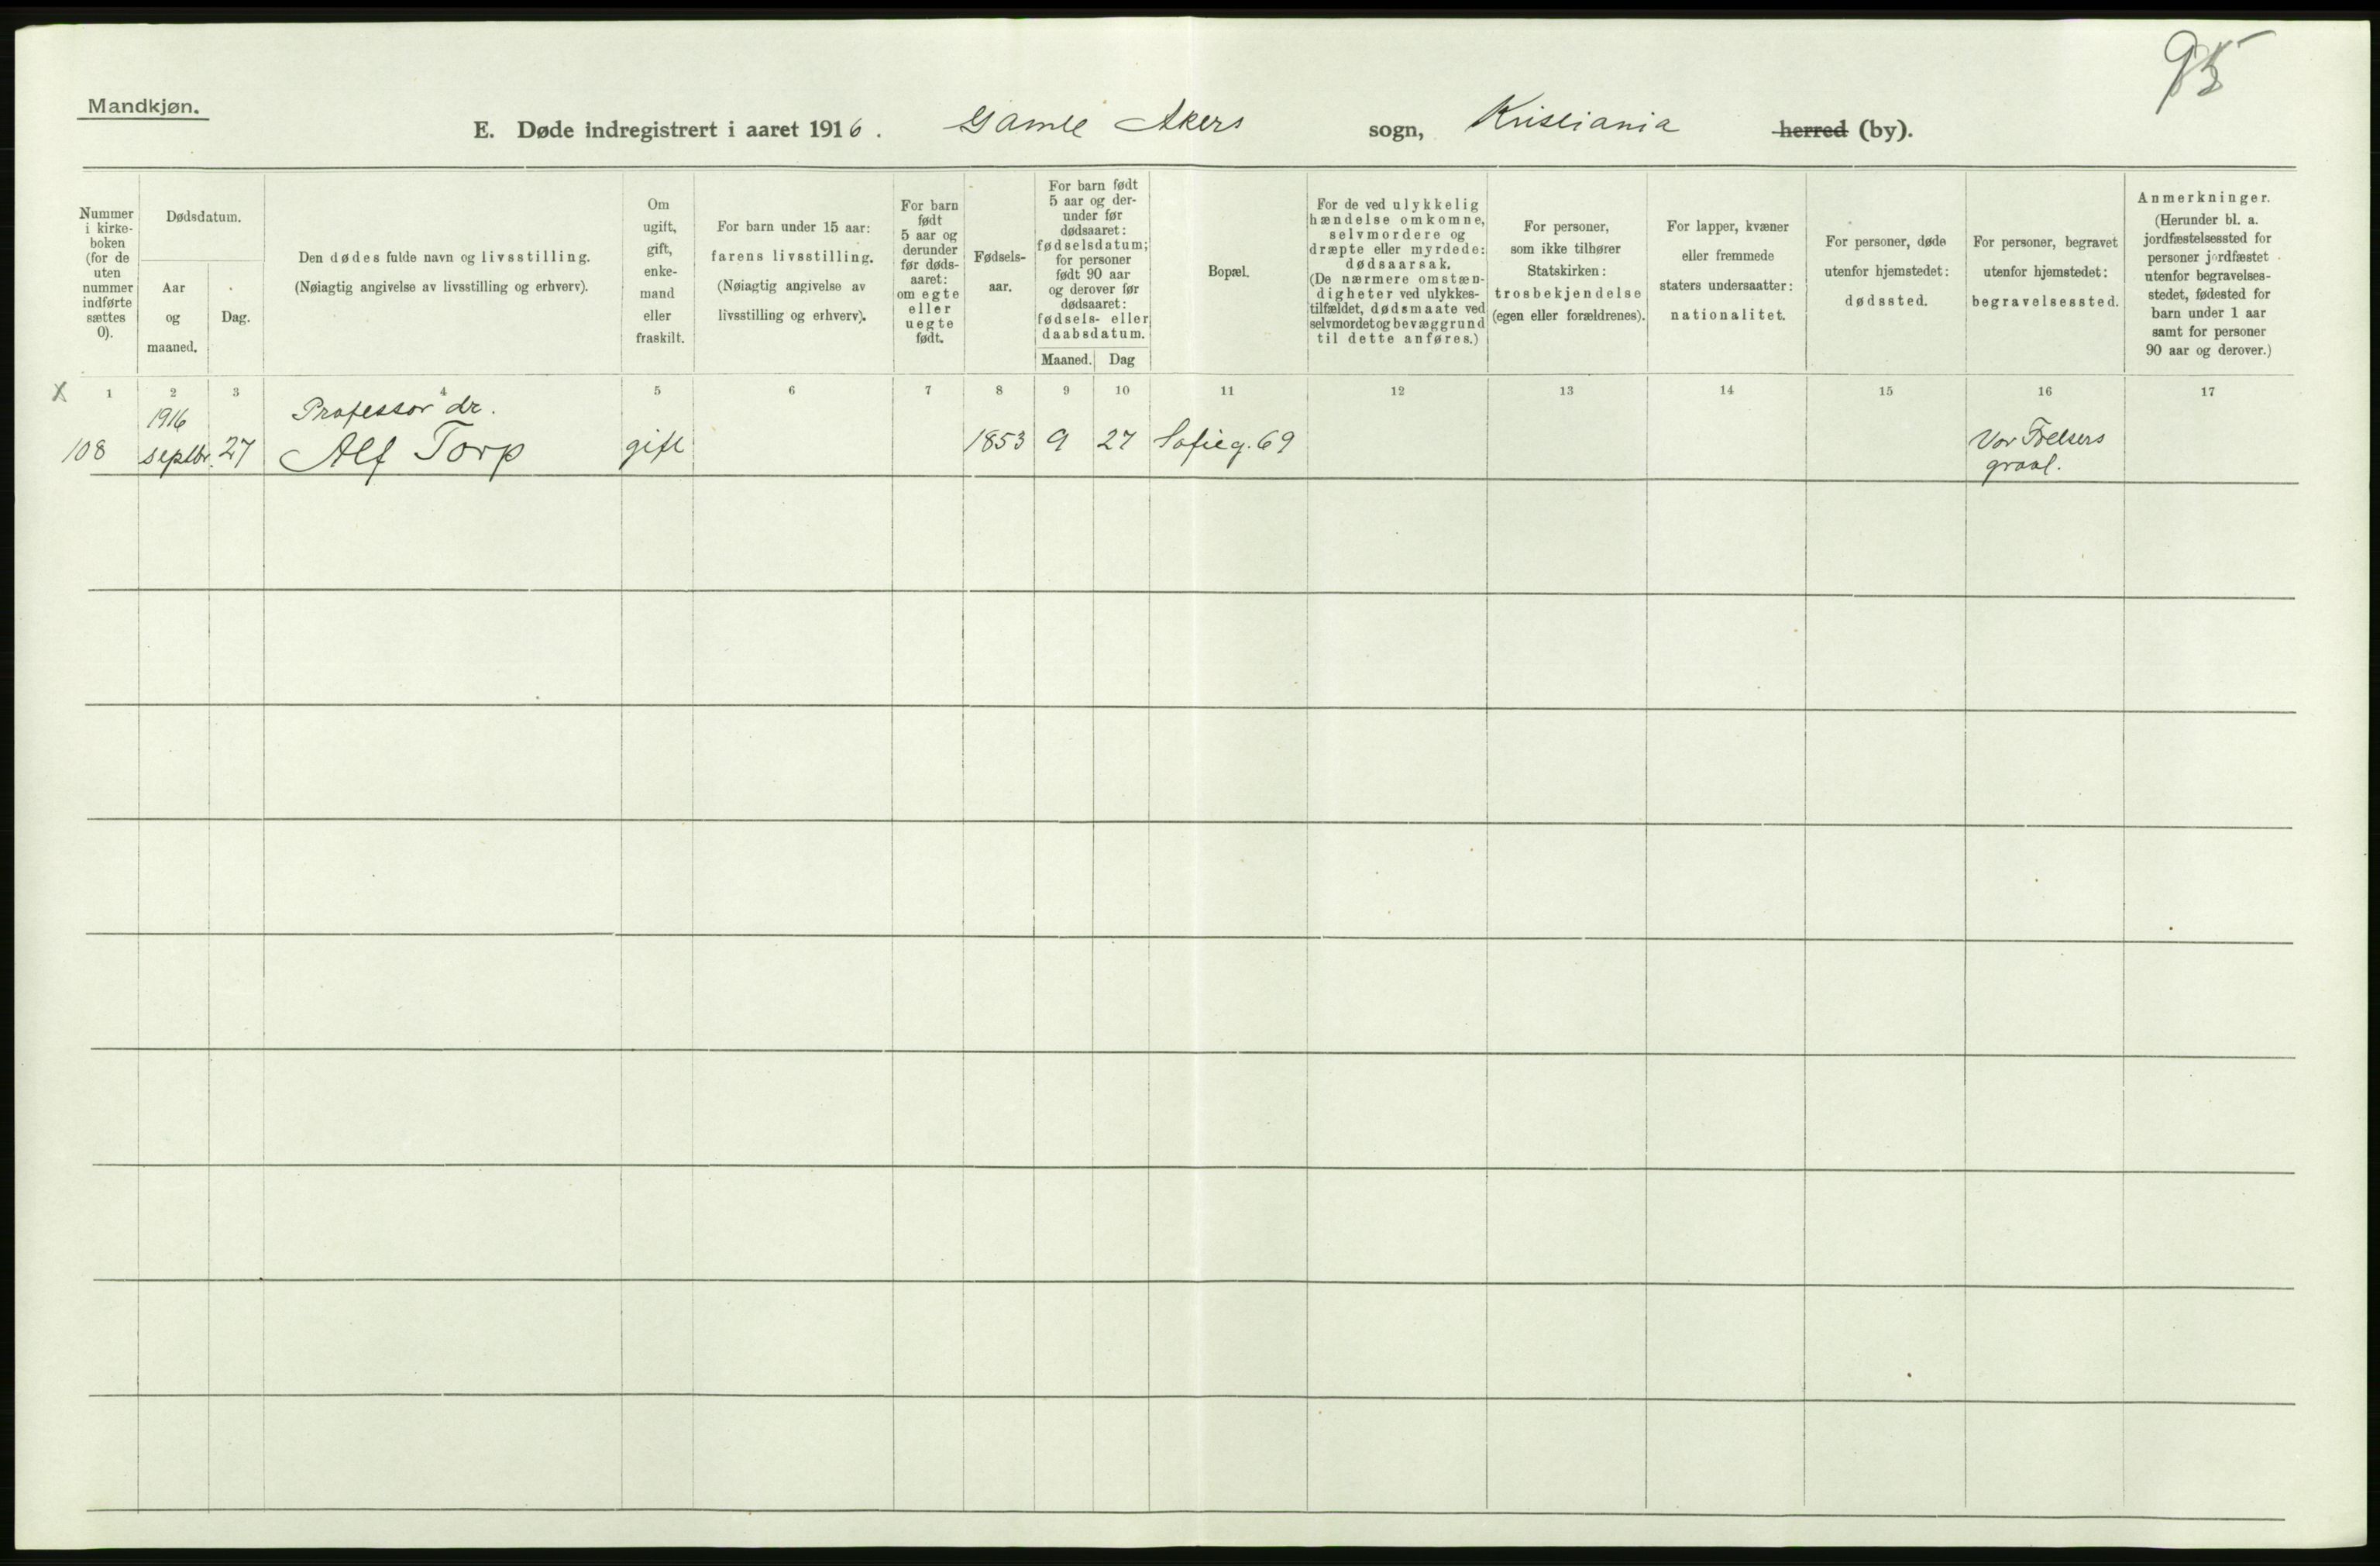 95
Mandkjøn.
E. Døde indregistrert i aaret 1916. Gamle Akers sogn, Kristiania herred (by).
Nummer
i kirke-
boken
(for de
uten
nummer
indførte
sættes
0).
Dødsdatum.
Aar
og
maaned.
Dag.
Den dødes fulde navn og livsstilling.
(Nøiagtig angivelse av livsstilling og erhverv).
Om
ugift,
gift,
enke-
mand
eller
fraskilt.
For barn under 15 aar:
farens livsstilling.
(Nøiagtig angivelse av
livsstilling og erhverv).
For barn
født
5 aar og
derunder
før døds-
aaret:
om egte
eller
uegte
født.
Fødsels-
aar.
For barn født
5 aar og der-
under før
dødsaaret:
fødselsdatum;
for personer
født 90 aar
og derover før
dødsaaret:
fødsels- eller
daabsdatum.
Maaned.
Dag
Bopæl.
For de ved ulykkelig
hændelse omkomne,
selvmordere og
dræpte eller myrdede:
dødsaarsak.
(De nærmere omstæn-
digheter ved ulykkes-
tilfældet, dødsmaate ved
selvmordet og bevæggrund
til dette anføres.)
For personer,
som ikke tilhører
Statskirken:
trosbekjendelse
(egen eller forældrenes).
For lapper, kvæner
eller fremmede
staters undersaatter:
nationalitet.
For personer, døde
utenfor hjemstedet:
dødssted.
For personer, begravet
utenfor hjemstedet:
begravelsessted.
Anmerkninger.
(Herunder bl. a.
jordfæstelsessted for
personer jordfæstet
utenfor begravelses-
stedet, fødested for
barn under 1 aar
samt for personer
90 aar og derover.)
X 1 2 3 4 5 6 7 8 9 10 11 12 13 14 15 16 17
1916 Professor dr.
108 septbr. 27 Alf Torp gift 1853 9 27 Sofieg. 69 Vor Frelsers
gravl.